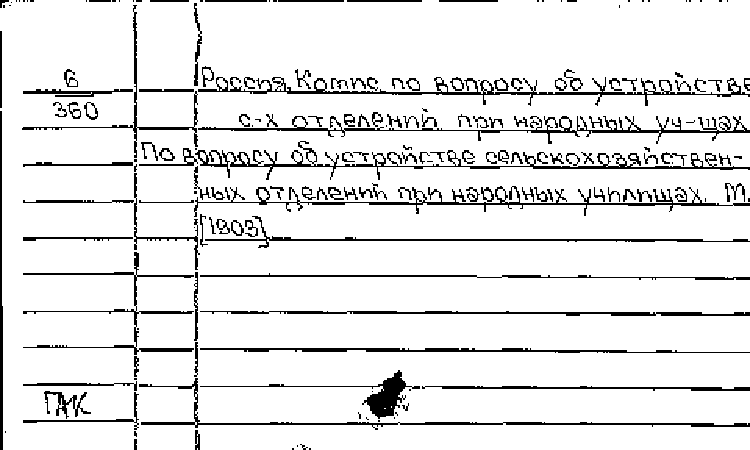 6
360
Россия. Комис. по вопросу об устройстве
с.-х отделений при народных уч-щах
По вопросу об устройстве сельскохозяйствен-
ных отделений при народных училищах. М.
[1903]
ГАК